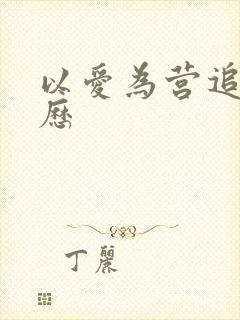 以愛為营追
歷
丁麗